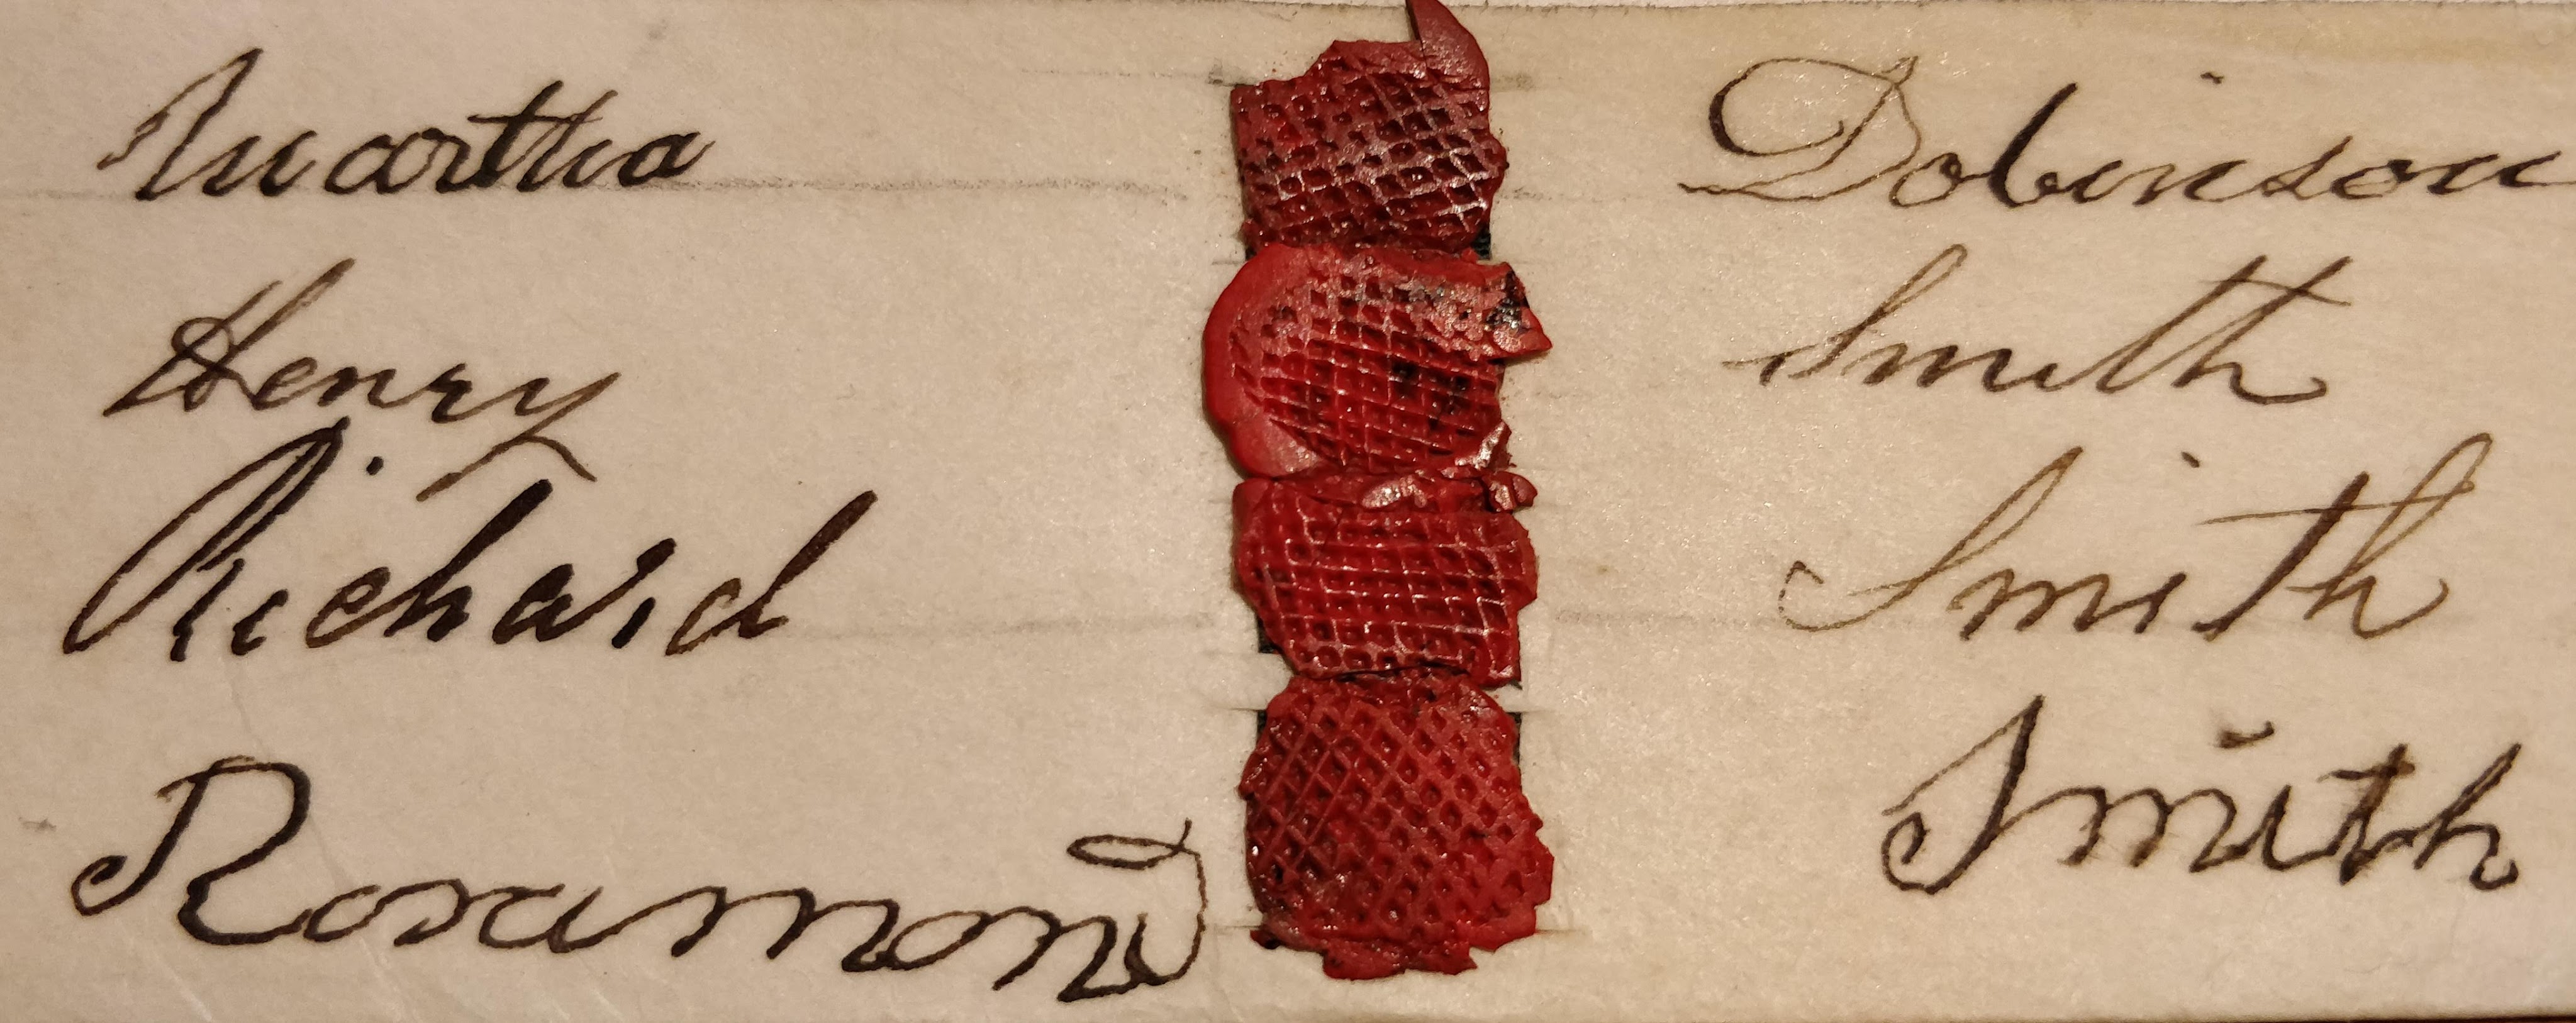 Martha Dobinson
Henry Smith
Richard Smith
Rosamond Smith